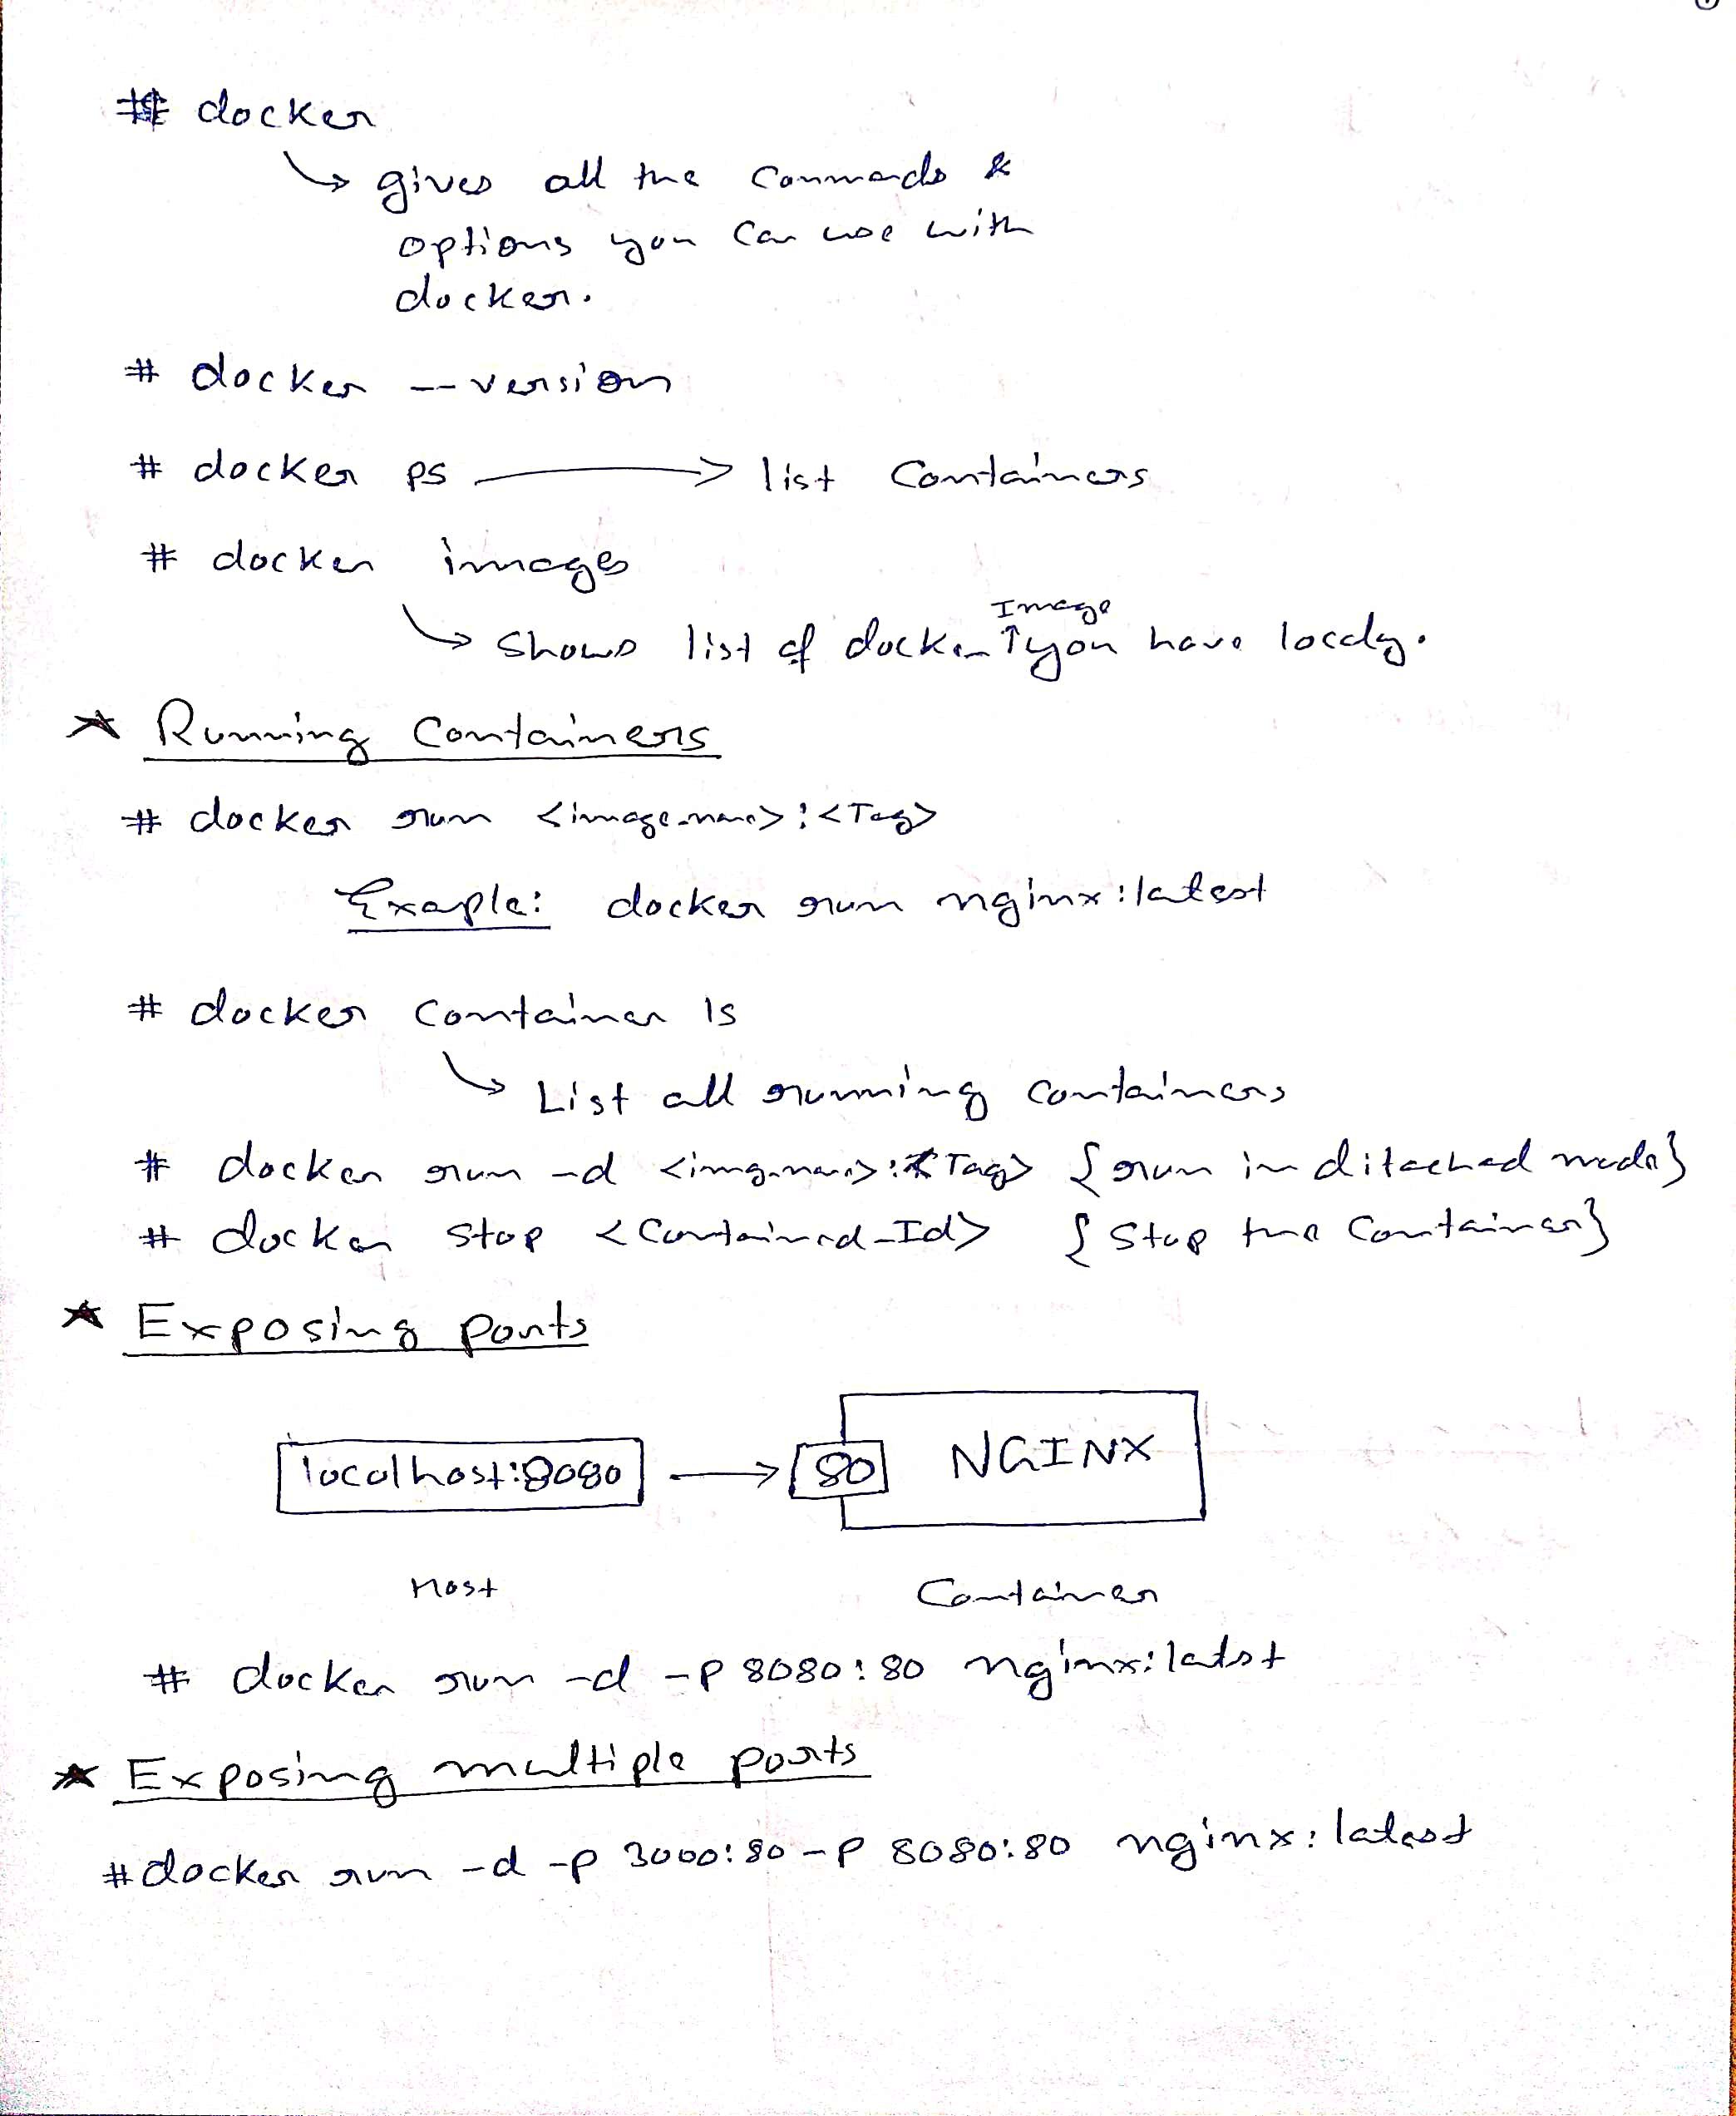 # docker
gives all the commands &
options you can use with
docker.
# docker --version
# docker ps → list Containers
# docker images
Image
Shows list of docker ↑ you have localy.
★ Running Containers
# docker run <image-name>:<Tag>
Exaple: docker run nginx:latest
# docker Container ls
List all running containers
# docker run -d <img-name>:<Tag> {run in ditached mode}
# docker stop <Contained_Id> {Stop the Container}
★ Exposing ports
localhost:8080 → 80 NGINX
Host Container
# docker run -d -p 8080:80 nginx:latst
★ Exposing multiple ports
# docker run -d -p 3000:80 -p 8080:80 nginx:latest